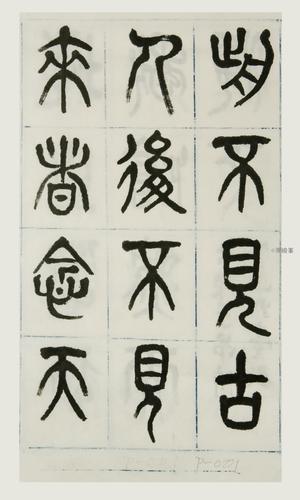 歬不見古
人後不見
來者念天